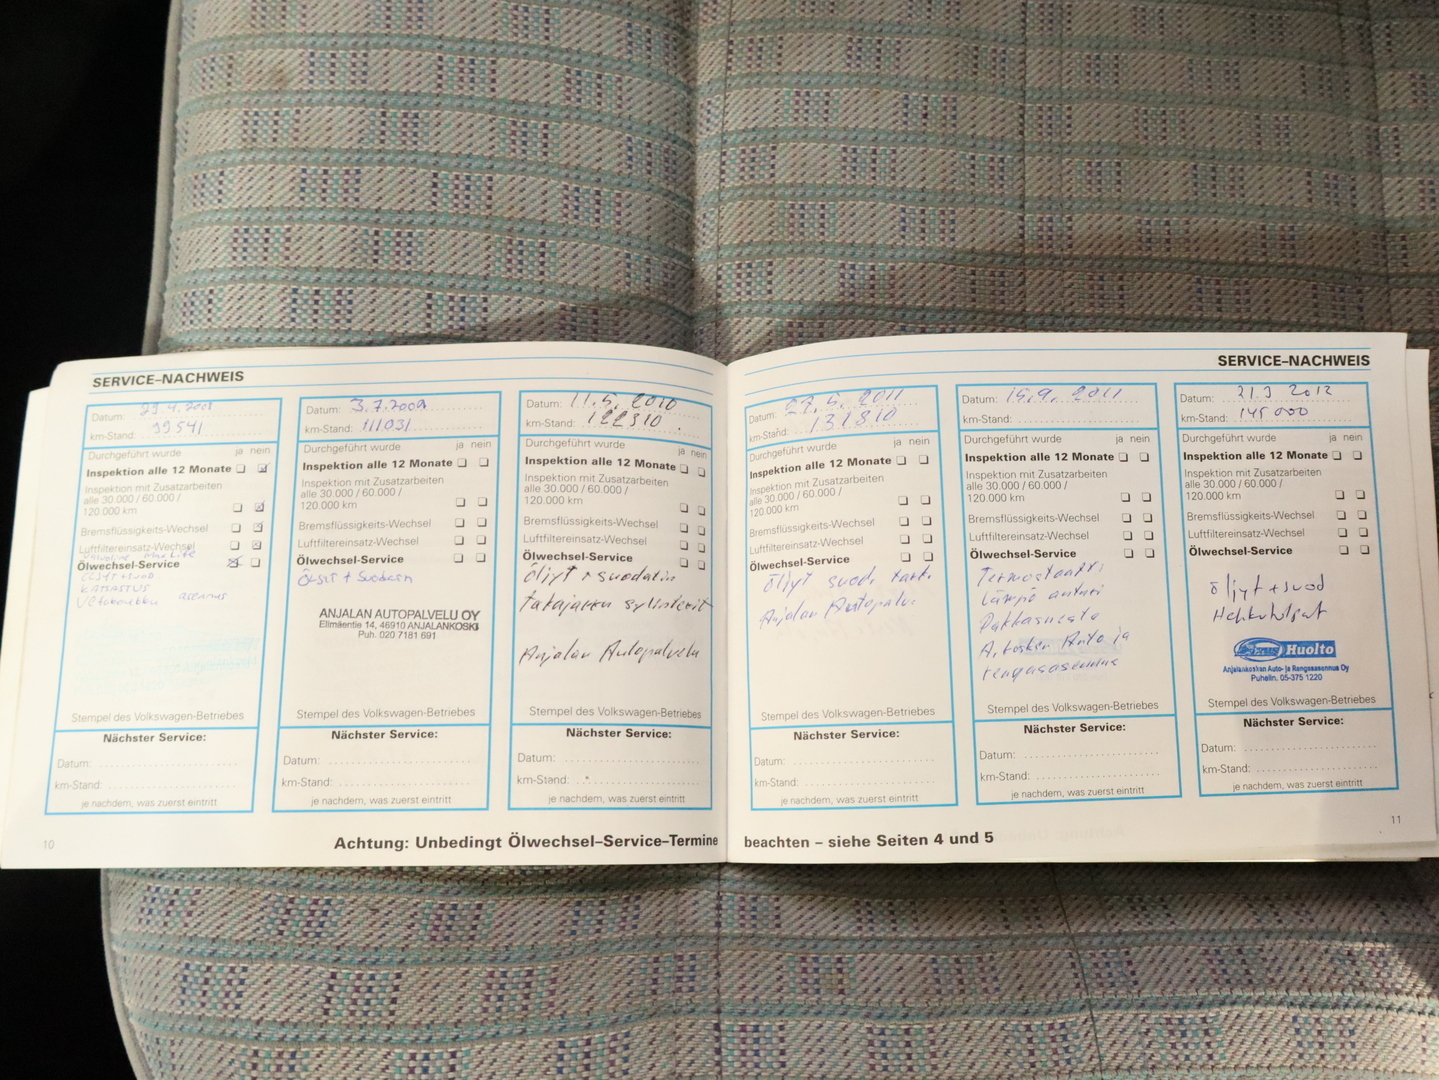 SERVICE–NACHWEIS
Datum: 29.4.2008
km-Stand: 99541
Durchgeführt wurde ja nein
Inspektion alle 12 Monate
Inspektion mit Zusatzarbeiten
alle 30.000 / 60.000 /
120.000 km
Bremsflüssigkeits-Wechsel
Luftfiltereinsatz-Wechsel
Ölwechsel-Service
Stempel des Volkswagen-Betriebes
Nächster Service:
Datum:
km-Stand:
je nachdem, was zuerst eintritt
Datum: 3.7.2009
km-Stand: 111031
Durchgeführt wurde ja nein
Inspektion alle 12 Monate
Inspektion mit Zusatzarbeiten
alle 30.000 / 60.000 /
120.000 km
Bremsflüssigkeits-Wechsel
Luftfiltereinsatz-Wechsel
Ölwechsel-Service
ANJALAN AUTOPALVELU OY
Elimäentie 14, 46910 ANJALANKOSKI
Puh. 020 7181 691
Stempel des Volkswagen-Betriebes
Nächster Service:
Datum:
km-Stand:
je nachdem, was zuerst eintritt
Datum: 11.5. 2010
km-Stand: 122310
Durchgeführt wurde ja nein
Inspektion alle 12 Monate
Inspektion mit Zusatzarbeiten
alle 30.000 / 60.000 /
120.000 km
Bremsflüssigkeits-Wechsel
Luftfiltereinsatz-Wechsel
Ölwechsel-Service
Öljyt + suodatin
takajarru sylinterit
Anjalan Autopalvelu
Stempel des Volkswagen-Betriebes
Nächster Service:
Datum:
km-Stand:
je nachdem, was zuerst eintritt
10
Achtung: Unbedingt Ölwechsel–Service–Termine
SERVICE–NACHWEIS
Datum: 27.5. 2011
km-Stand: 131310
Durchgeführt wurde ja nein
Inspektion alle 12 Monate
Inspektion mit Zusatzarbeiten
alle 30.000 / 60.000 /
120.000 km
Bremsflüssigkeits-Wechsel
Luftfiltereinsatz-Wechsel
Ölwechsel-Service
Öljyt suod.
Anjalan Autopalv.
Stempel des Volkswagen-Betriebes
Nächster Service:
Datum:
km-Stand:
je nachdem, was zuerst eintritt
Datum: 15.9. 2011
km-Stand:
Durchgeführt wurde ja nein
Inspektion alle 12 Monate
Inspektion mit Zusatzarbeiten
alle 30.000 / 60.000 /
120.000 km
Bremsflüssigkeits-Wechsel
Luftfiltereinsatz-Wechsel
Ölwechsel-Service
Termostaatti
Lämpö anturi
Auto ja
rengasasennus
Stempel des Volkswagen-Betriebes
Nächster Service:
Datum:
km-Stand:
je nachdem, was zuerst eintritt
Datum: 21.3 2012
km-Stand: 145000
Durchgeführt wurde ja nein
Inspektion alle 12 Monate
Inspektion mit Zusatzarbeiten
alle 30.000 / 60.000 /
120.000 km
Bremsflüssigkeits-Wechsel
Luftfiltereinsatz-Wechsel
Ölwechsel-Service
Öljyt + suod
Hehkutulpat
Huolto
Anjalankosken Auto- ja Rengasasennus Oy
Puhelin. 05-375 1220
Stempel des Volkswagen-Betriebes
Nächster Service:
Datum:
km-Stand:
je nachdem, was zuerst eintritt
11
beachten – siehe Seiten 4 und 5